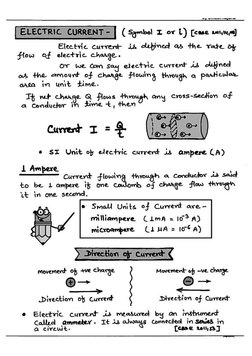 ELECTRIC CURRENT - (Symbol I or i)
Electric current is defined as the rate of
flow of electric charge.
Or we can say electric current is defined
as the amount of charge flowing through a particular
area in unit time.
If net charge Q flows through any cross-section of
a conductor in time t, then
Current I = Q/t
• SI Unit of electric current is ampere (A)
1 Ampere
Current flowing through a conductor is said
to be 1 ampere if one coulomb of charge flow through
it in one second.
• Small Units of Current are -
milliampere (1mA = 10⁻³ A)
microampere (1μA = 10⁻⁶ A)
Direction of Current
Movement of +ve charge
Movement of -ve charge
Direction of Current
Direction of Current
• Electric current is measured by an instrument
called ammeter. It is always connected in series in
a circuit.